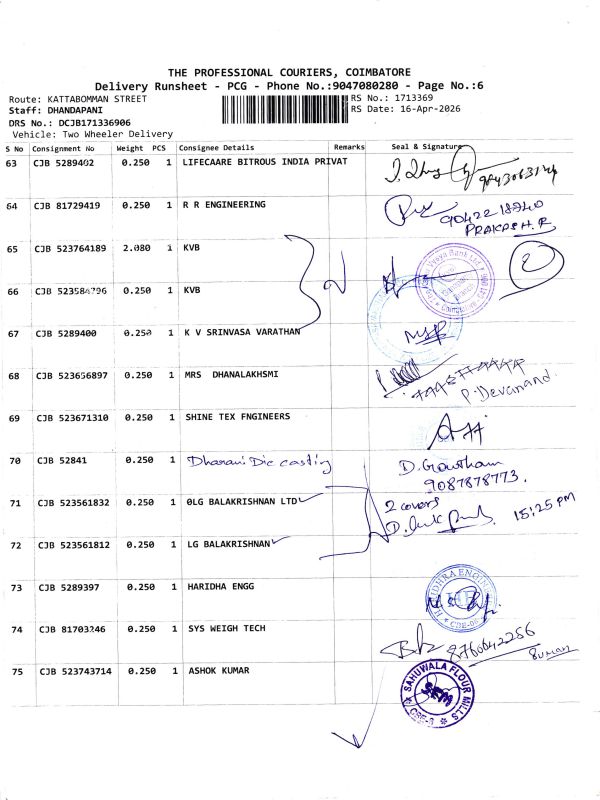 THE PROFESSIONAL COURIERS, COIMBATORE
Delivery Runsheet - PCG - Phone No.:9047080280 - Page No.:6
Route: KATTABOMMAN STREET RS No.: 1713369
Staff: DHANDAPANI RS Date: 16-Apr-2026
DRS No.: DCJB171336906
Vehicle: Two Wheeler Delivery
S No Consignment No Weight PCS Consignee Details Remarks Seal & Signature
63 CJB 5289402 0.250 1 LIFECAARE BITROUS INDIA PRIVAT
64 CJB 81729419 0.250 1 R R ENGINEERING
PRAKASH.R
65 CJB 523764189 2.080 1 KVB
66 CJB 523584796 0.250 1 KVB
67 CJB 5289400 0.250 1 K V SRINVASA VARATHAN
68 CJB 523656897 0.250 1 MRS DHANALAKHSMI
P. Devanand.
69 CJB 523671310 0.250 1 SHINE TEX FNGINEERS
70 CJB 52841 0.250 1 Dharani Die casting D. Gowtham
9087878773.
71 CJB 523561832 0.250 1 0LG BALAKRISHNAN LTD 2 covers
15:25 PM
72 CJB 523561812 0.250 1 LG BALAKRISHNAN
73 CJB 5289397 0.250 1 HARIDHA ENGG
74 CJB 81703246 0.250 1 SYS WEIGH TECH 8760042256
75 CJB 523743714 0.250 1 ASHOK KUMAR
SAHUWALA FLOUR MILLS
CBE-6